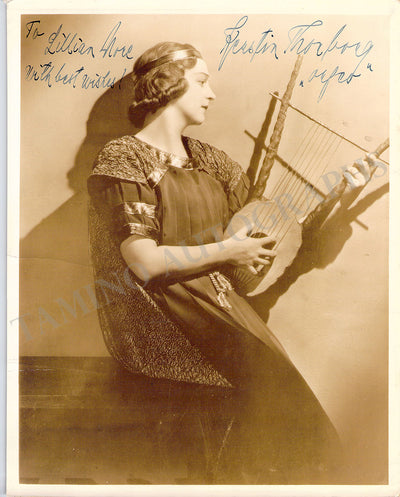 To
Lillian More
with best wishes!
Kerstin Thorborg
"orfeo"
TAMINO AUTOGRAPHS